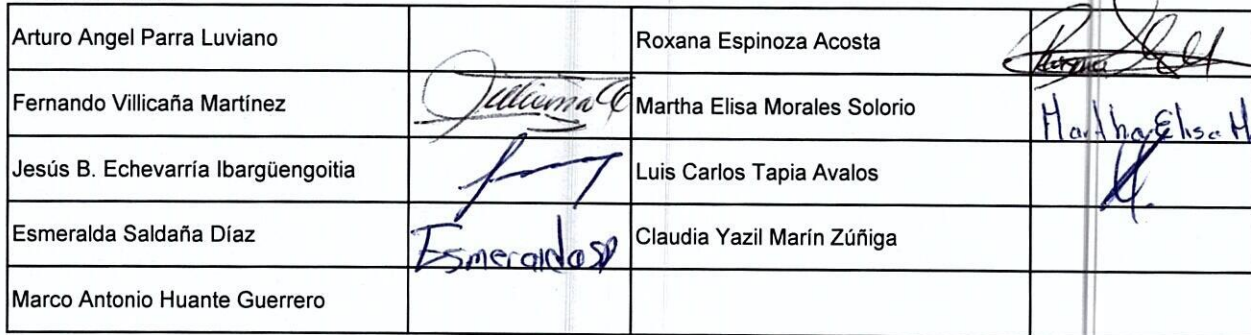 Arturo Angel Parra Luviano
Roxana Espinoza Acosta
Fernando Villicaña Martínez
Martha Elisa Morales Solorio
Martha Elisa M
Jesús B. Echevarría Ibargüengoitia
Luis Carlos Tapia Avalos
Esmeralda Saldaña Díaz
Esmeralda SD
Claudia Yazil Marín Zúñiga
Marco Antonio Huante Guerrero